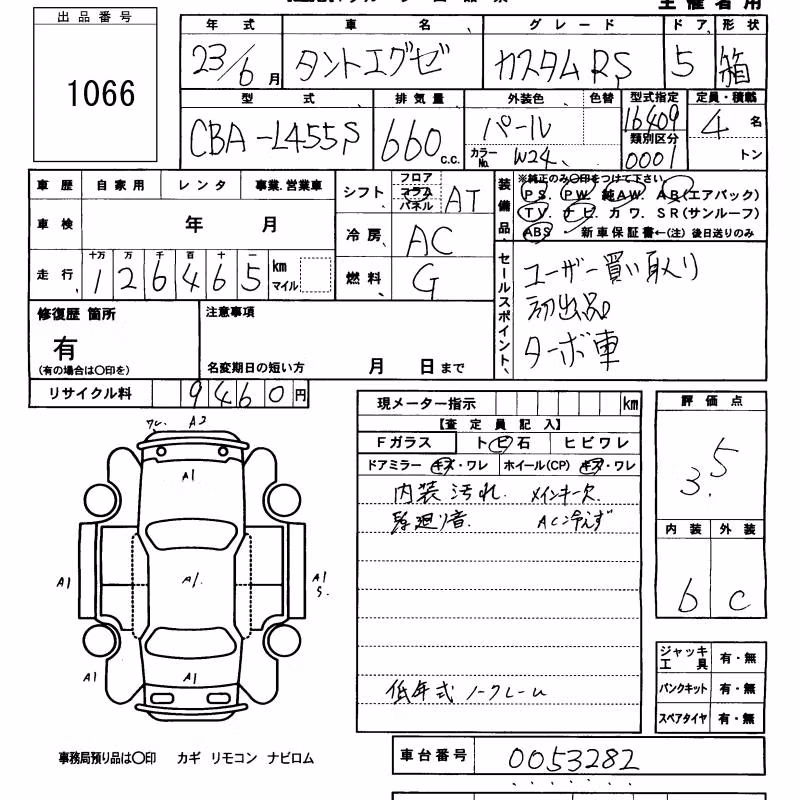 主催者用
出品番号
1066
年式 車名 グレード ドア 形状
23/6月 タントエグゼ カスタムRS 5 箱
型式 排気量 外装色 色替 型式指定 定員・積載
CBA-L455S 660c.c. パール 16409 4名
カラーNo. W24 類別区分 0001 トン
車歴 自家用 レンタ 事業.営業車
車検 年 月
走行 十万 万 千 百 十 一
126465 km マイル
シフト フロア コラム パネル AT
冷房 AC
燃料 G
装備品、
※純正のみ〇印をつけて下さい。
PS. PW. 純AW. AB(エアバック)
TV. ナビ カワ. SR(サンルーフ)
ABS 新車保証書←(注)後日送りのみ
セールスポイント、
ユーザー買い取り
初出品
ターボ車
修復歴 箇所
有
(有の場合は〇印を)
注意事項
名変期日の短い方 月 日まで
リサイクル料 9460円
現メーター指示 km
【査定員記入】
Fガラス ト ビ 石 ヒビワレ
ドアミラー キズ・ワレ ホイール(CP) キズ・ワレ
内装汚れ. メインキー欠.
異廻り音. AC冷えず
低年式 ノークレーム
評価点
3.5
内装 外装
b C
ジャッキ工具 有・無
パンクキット 有・無
スペアタイヤ 有・無
ワレ. A2
A1
A1.
A1
A1
S.
A1
A1
A1
事務局預り品は〇印 カギ リモコン ナビロム
車台番号 0053282